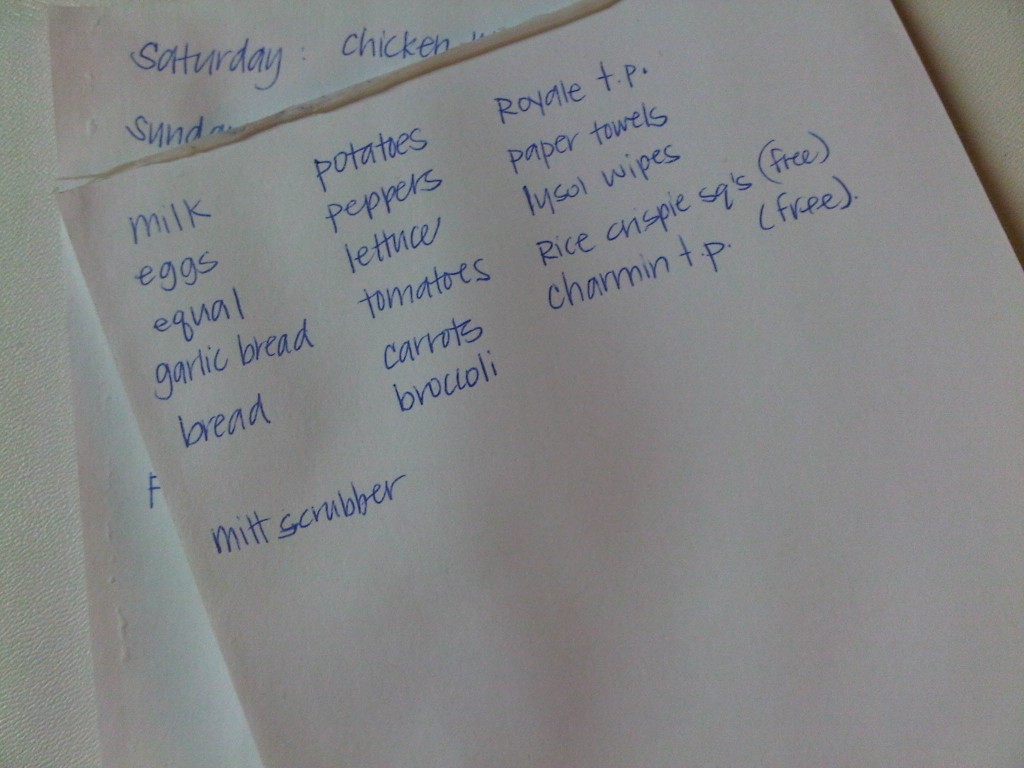 Saturday: Chicken
Sunda
milk
eggs
equal
garlic bread
bread
mitt scrubber
potatoes
peppers
lettuce
tomatoes
carrots
broccoli
Royale t.p.
paper towels
lysol wipes
Rice crispie sq's (free)
charmin t.p. (free).
F